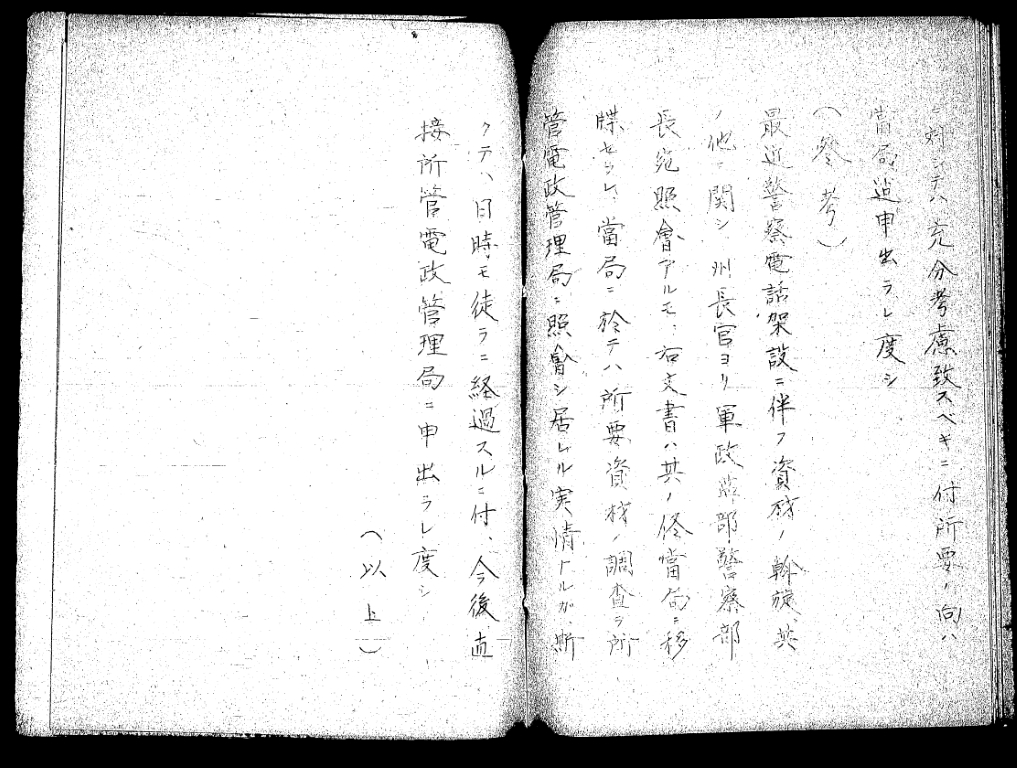 対シテハ充分考慮致スベキニ付所要ノ向ハ
当局迄申出ラレ度シ
(参考)
最近警察電話架設ニ伴フ資材ノ斡旋、其
ノ他ニ関シ州長官ヨリ軍政監部警察部
長宛照會アルモ、右文書ハ其ノ侭當局ニ移
牒セラレ、當局ニ於テハ所要資材ノ調査ヲ所
管電政管理局ニ照會シ居レル実情ナルガ、斯
クテハ日時モ徒ラニ経過スルニ付、今後直
接所管電政管理局ニ申出ラレ度シ
(以上)